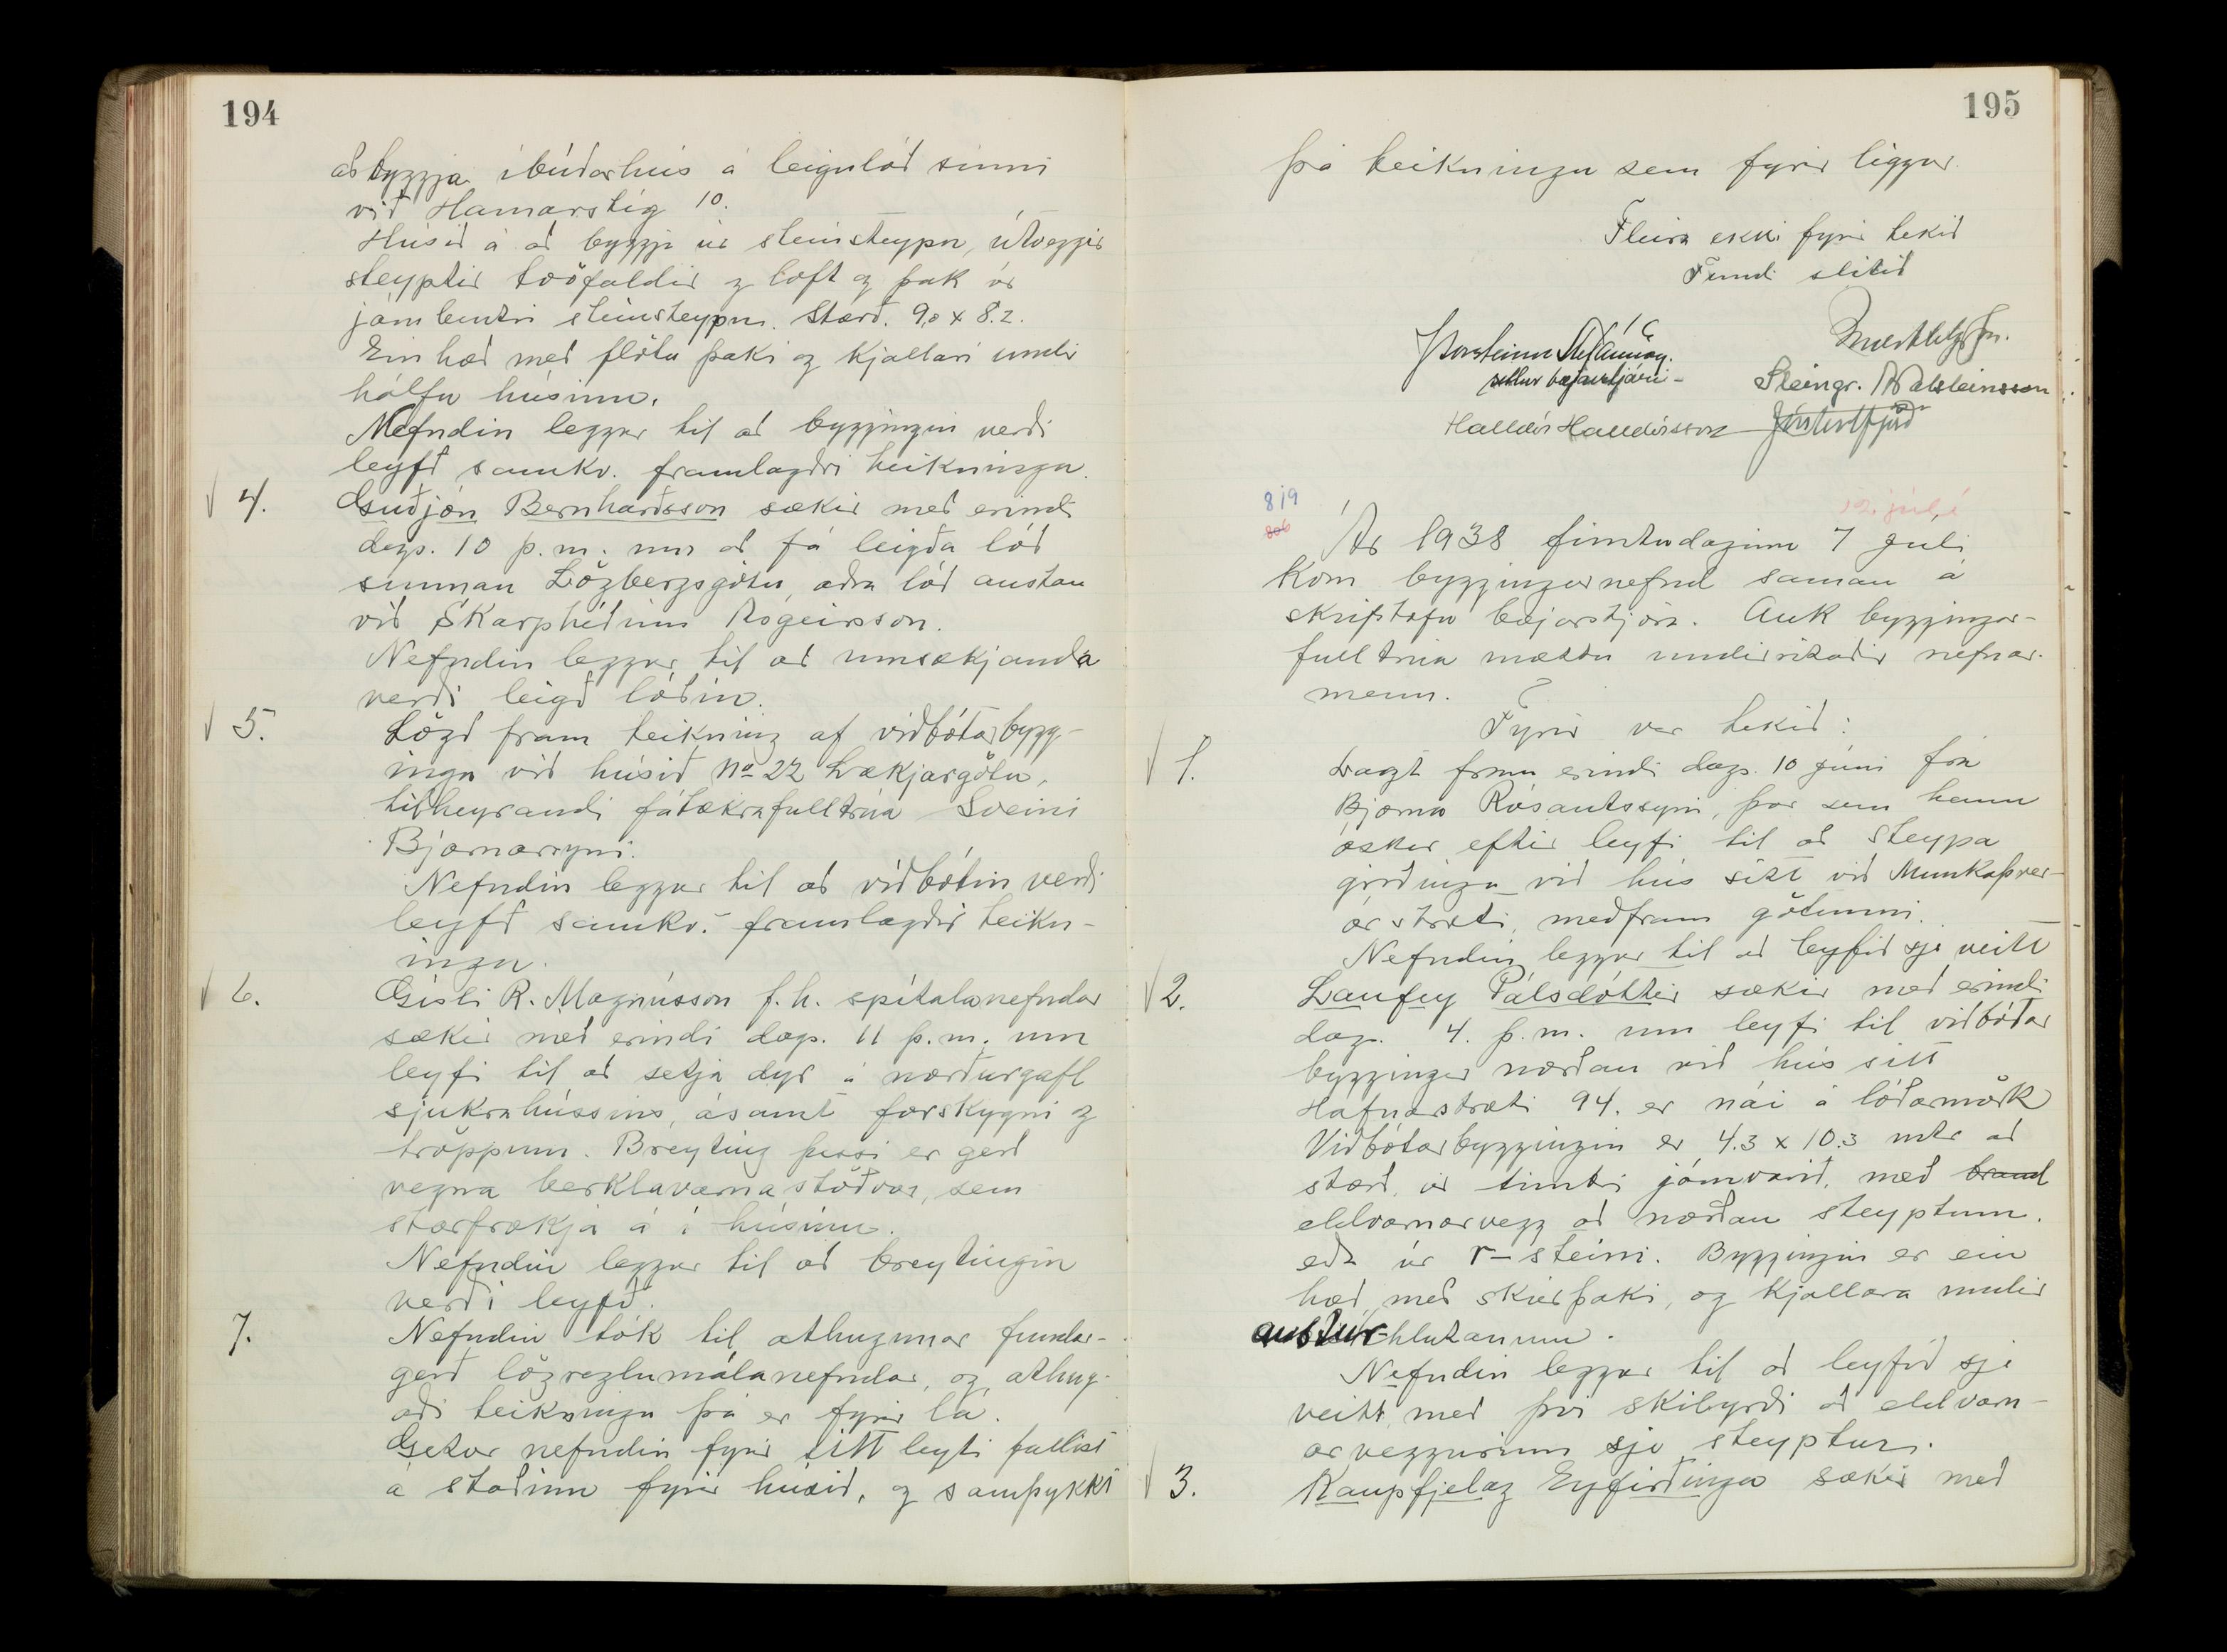 194
að byggja íbúðarhús á leigulóð sinni
við Hamarstíg 10.
Húsið á að byggja úr steinsteypu, útveggir
steyptir tvöfaldir og loft og þak úr
járnbentri steinsteypu. Stærð. 9.0 x 8.2.
Ein hæð með flötu þaki og kjallari undir
hálfu húsinu.
Nefndin leggur til að byggingin verði
leyfð samkv. framlagðri teikningu.
4. Guðjón Bernharðsson sækir með erindi
dags. 10 þ.m. um að fá leigða lóð
sunnan Lögbergsgötu, aðra lóð austan
við Skarphéðinn Ásgeirsson.
Nefndin leggur til að umsækjanda
verði leigð lóðin.
5. Lögð fram teikning af viðbótarbygg-
ingu við húsið No 22 Lækjargötu,
tilheyrandi fátækrafulltrúa Sveini
Bjarnarsyni.
Nefndin leggur til að viðbótin verði
leyfð samkv. framlagðri teikn-
ingu.
6. Gísli R. Magnússon f.h. spítalanefndar
sækir með erindi dags. 11 þ.m. um
leyfi til að setja dyr á norðurgafl
sjúkrahússins, ásamt forskygni og
tröppum. Breyting þessi er gerð
vegna berklavarnastöðvar, sem
starfrækja á í húsinu.
Nefndin leggur til að breytingin
verði leyfð.
7. Nefndin tók til athugunar fundar-
gerð lögreglumálanefndar, og athug-
aði teikningu þá er fyrir lá.
Getur nefndin fyrir sitt leyti fallist
á staðinn fyrir húsið, og samþykkt
195
þá teikningu sem fyrir liggur.
Fleira ekki fyrir tekið
Fundi slitið
Þorsteinn Stefánsson.
settur bæjarstjóri -
Steingr. Aðalsteinsson
Halldór Halldórsson
819
806
12. júlí
Ár 1938 fimtudaginn 7 Júlí
kom byggingarnefnd saman á
skrifstofu bæjarstjóra. Auk byggingar-
fulltrúa mættu undirritaðir nefndar-
menn.
Fyrir var tekið:
1. Lagt fram erindi dags. 10 Júní frá
Birni Rósantssyni, þar sem hann
óskar eftir leyfi til að steypa
girðingu við hús sitt við Munkaþver-
árstræti, meðfram götunni.
Nefndin leggur til að leyfið sje veitt
2. Laufey Pálsdóttir sækir með erindi
dag. 4. þ.m. um leyfi til viðbótar
byggingar norðan við hús sitt
Hafnarstræti 94. er nái á lóðarmörk
Viðbótarbyggingin er 4.3 x 10.3 mtr að
stærð, úr timbri járnvarið, með brand
eldvarnarvegg að norðan steyptum.
eða úr r-steini. Byggingin er ein
hæð, með skúrþaki, og kjallara undir
austur-hlutanum.
Nefndin leggur til að leyfið sje
veitt með því skilyrði að eldvarn-
arveggurinn sje steyptur.
3. Kaupfjelag Eyfirðinga sækir með